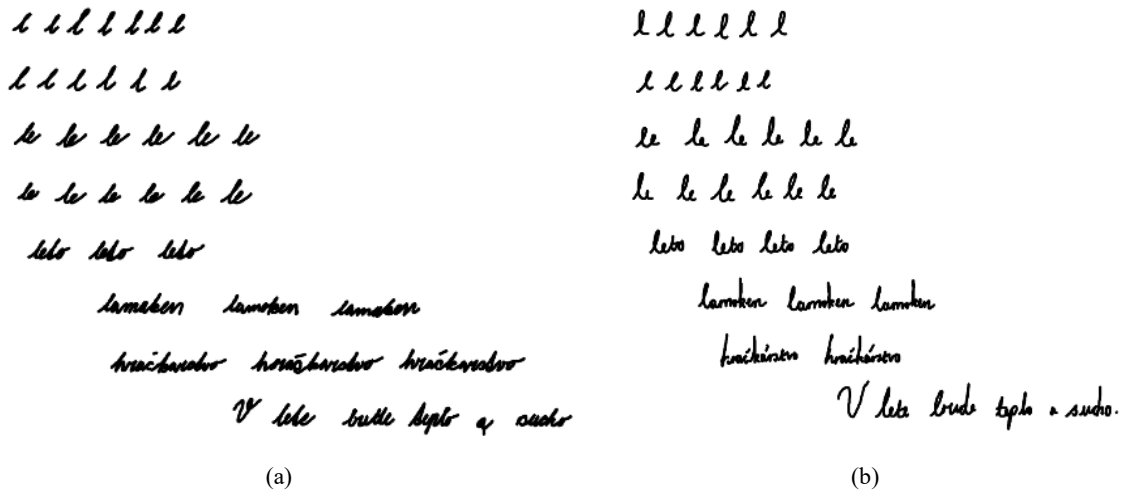 l l l l l l l
l l l l l l
le le le le le le
le le le le le le
leto leto leto
lamoken lamoken lamoken
hračkarstvo hračkarstvo hračkarstvo
V lete bude teplo a sucho
(a)
l l l l l l
l l l l l l
le le le le le le
le le le le le le
leto leto leto leto
lamoken lamoken lamoken
hračkárstvo hračkárstvo
V lete bude teplo a sucho.
(b)